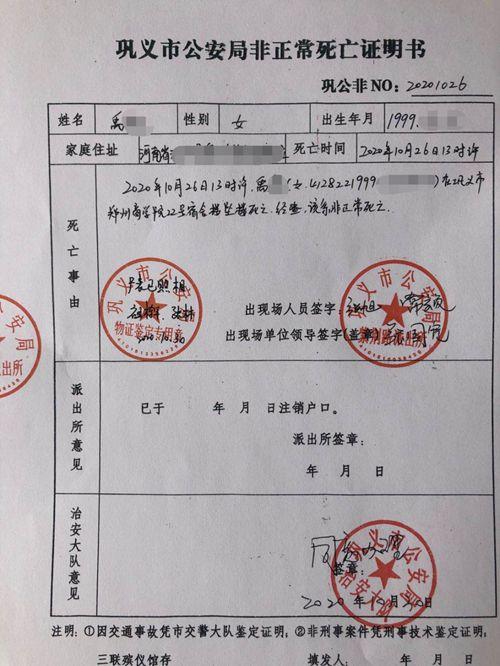 巩义市公安局非正常死亡证明书
巩公非NO: 20201026
姓名 禹 性别 女 出生年月 1999.
家庭住址 河南省 死亡时间 2020年10月26日13时许
死亡事由
2020年10月26日13时许,禹 (女,412822199 )在巩义市
郑州商学院22号宿舍楼坠楼死亡.经查,该系非正常死亡.
巩义市公安局
物证鉴定专用章
已照相
2020.10.30
出现场人员签字:
出现场单位领导签字(盖章)
巩义市公安局
派出所
派出所意见
已于 年 月 日注销户口。
派出所签章:
年 月 日
治安大队意见
签章:
巩义市公安局
治安大队
2020年10月30日
注明:①因交通事故凭市交警大队鉴定证明;②非刑事案件凭刑事技术鉴定证明。
三联殡仪馆存 填发人: 年 月 日